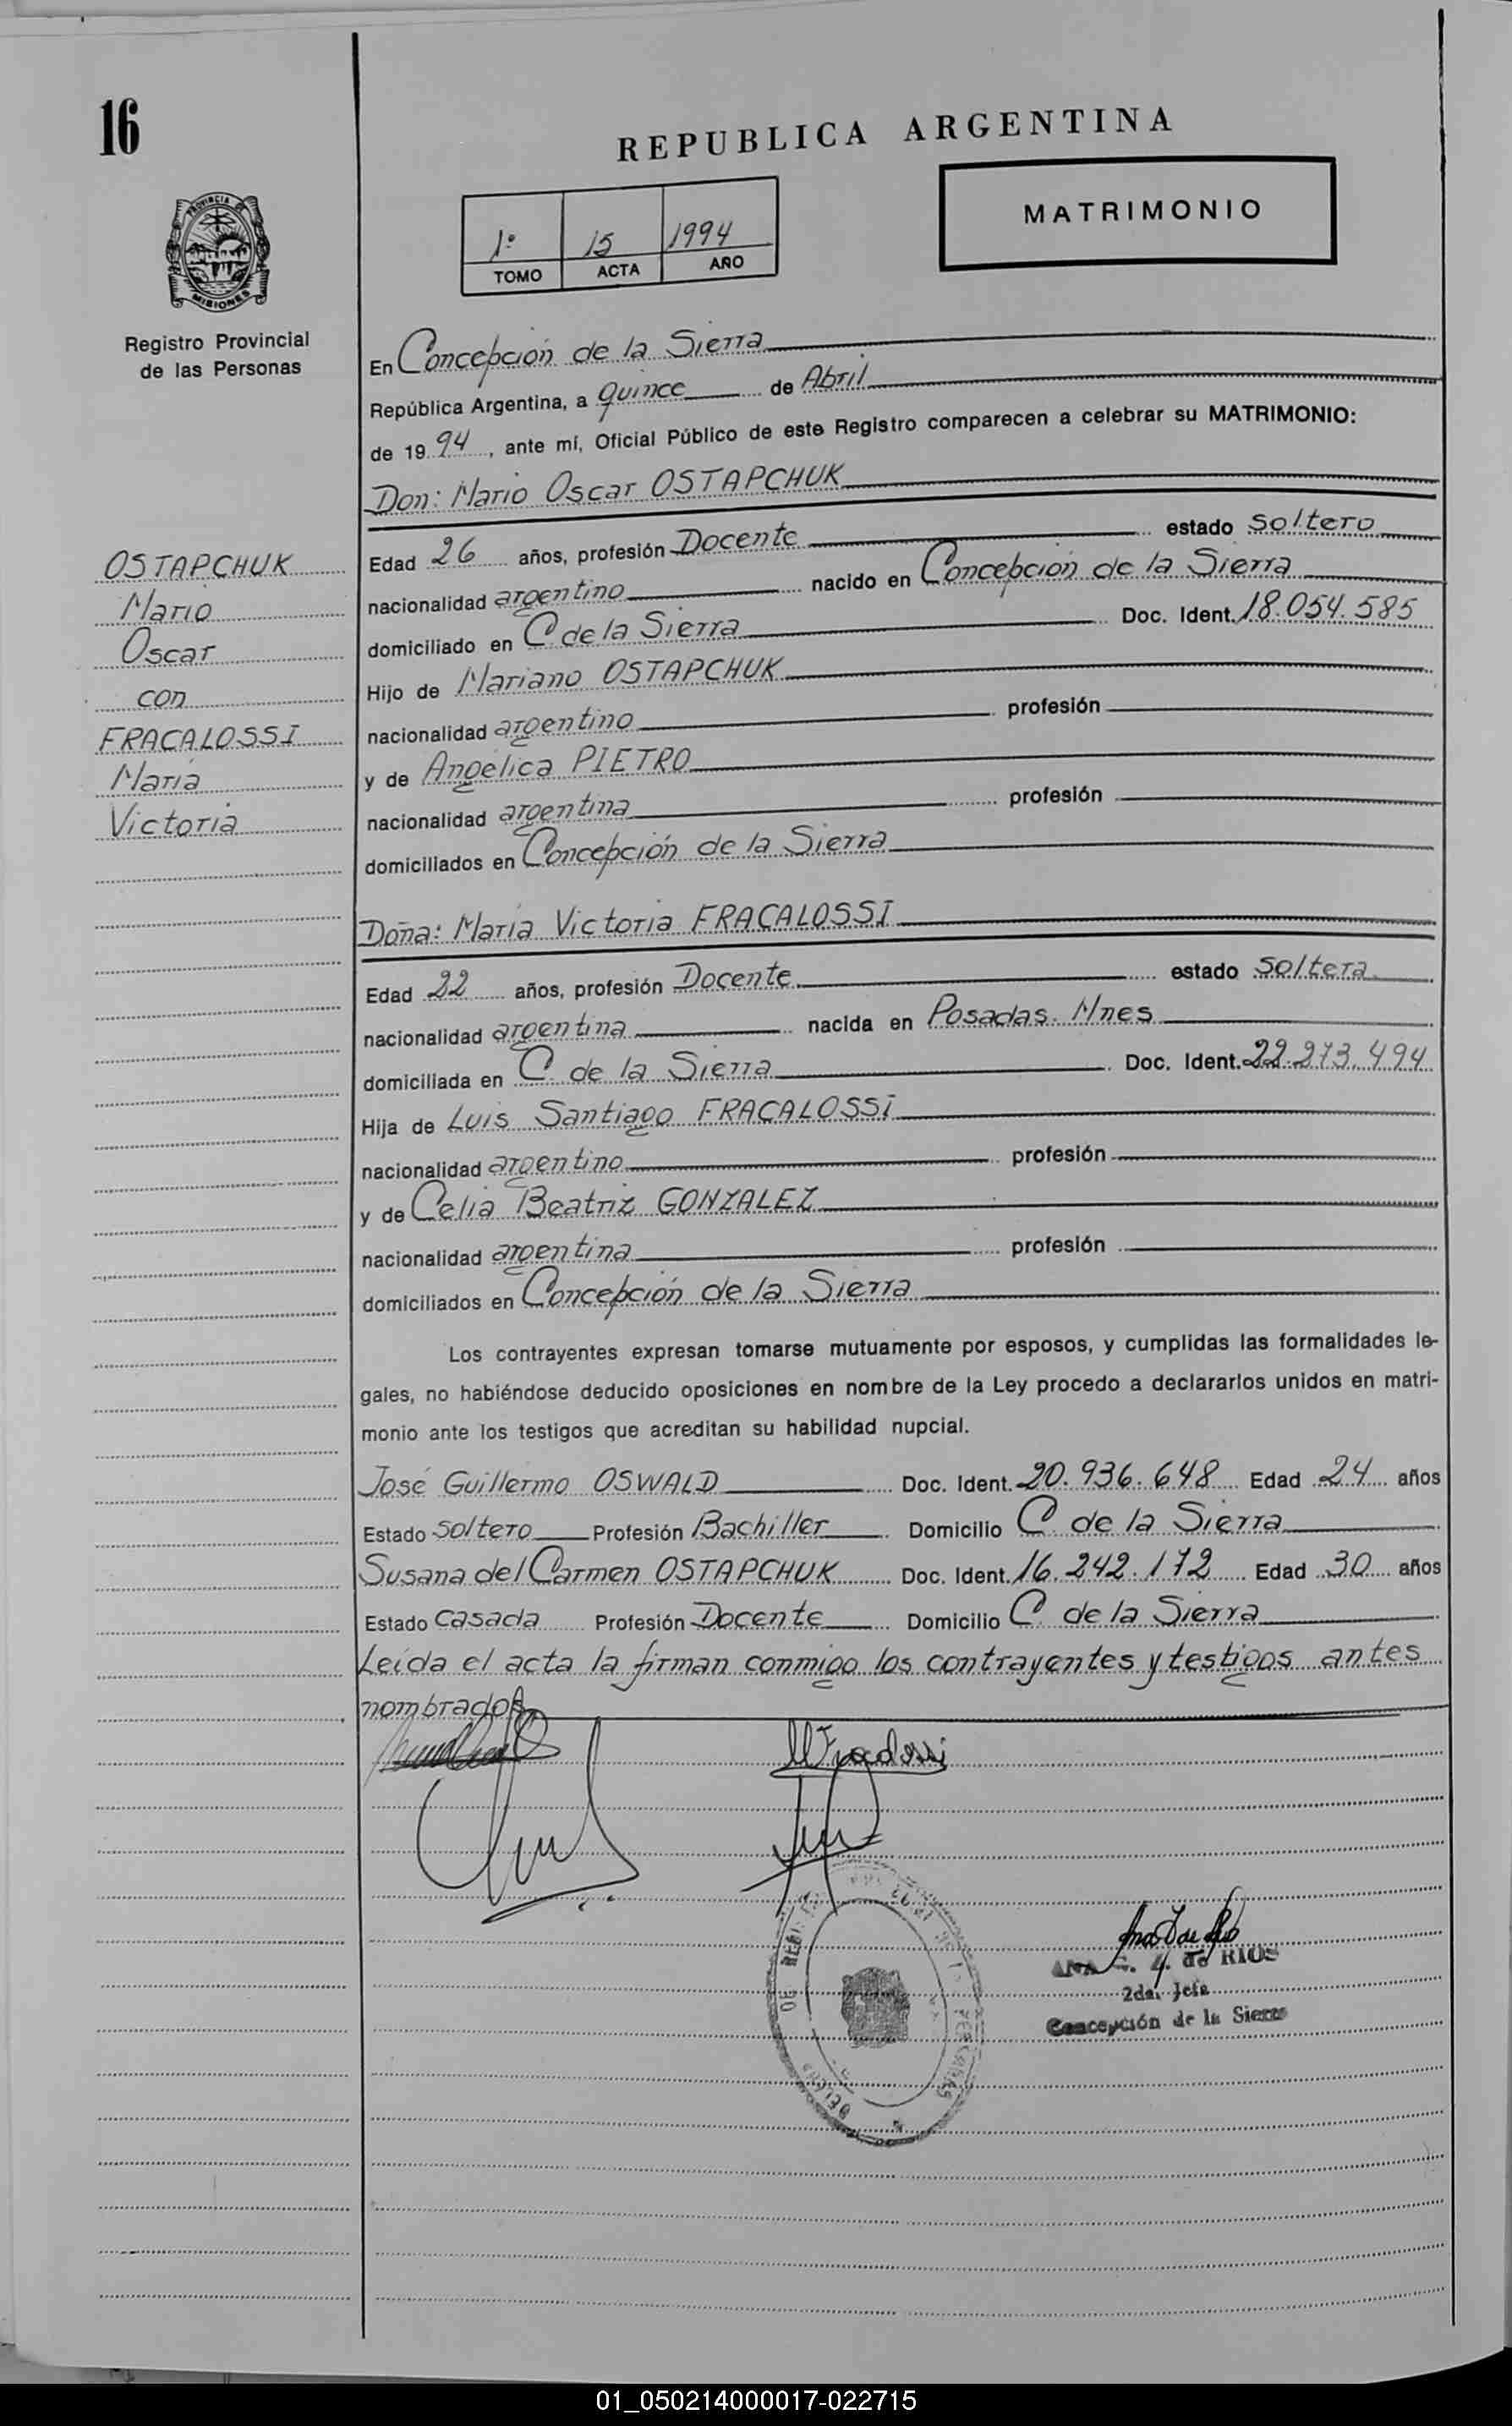 16
REPUBLICA ARGENTINA
PROVINCIA DE
MISIONES
1º 15 1994
TOMO ACTA AÑO
MATRIMONIO
Registro Provincial
de las Personas
En Concepción de la Sierra
República Argentina, a quince de Abril
de 1994, ante mí, Oficial Público de este Registro comparecen a celebrar su MATRIMONIO:
Don: Mario Oscar OSTAPCHUK
OSTAPCHUK
Mario
Oscar
con
FRACALOSSI
María
Victoria
Edad 26 años, profesión Docente estado soltero
nacionalidad argentino nacido en Concepción de la Sierra
domiciliado en C. de la Sierra Doc. Ident. 18.054.585
Hijo de Mariano OSTAPCHUK
nacionalidad argentino profesión
y de Angelica PIETRO
nacionalidad argentina profesión
domiciliados en Concepción de la Sierra
Doña: María Victoria FRACALOSSI
Edad 22 años, profesión Docente estado soltera
nacionalidad argentina nacida en Posadas. Mnes
domiciliada en C. de la Sierra Doc. Ident. 22.273.494
Hija de Luis Santiago FRACALOSSI
nacionalidad argentino profesión
y de Celia Beatriz GONZALEZ
nacionalidad argentina profesión
domiciliados en Concepción de la Sierra
Los contrayentes expresan tomarse mutuamente por esposos, y cumplidas las formalidades le-
gales, no habiéndose deducido oposiciones en nombre de la Ley procedo a declararlos unidos en matri-
monio ante los testigos que acreditan su habilidad nupcial.
José Guillermo OSWALD Doc. Ident. 20.936.648 Edad 24 años
Estado soltero Profesión Bachiller Domicilio C de la Sierra
Susana del Carmen OSTAPCHUK Doc. Ident. 16.242.172 Edad 30 años
Estado casada Profesión Docente Domicilio C. de la Sierra
Leída el acta la firman conmigo los contrayentes y testigos antes
nombrados
MVFracalossi
de RIOS
2da. Jefa
Concepción de la Sierra
01_050214000017-022715